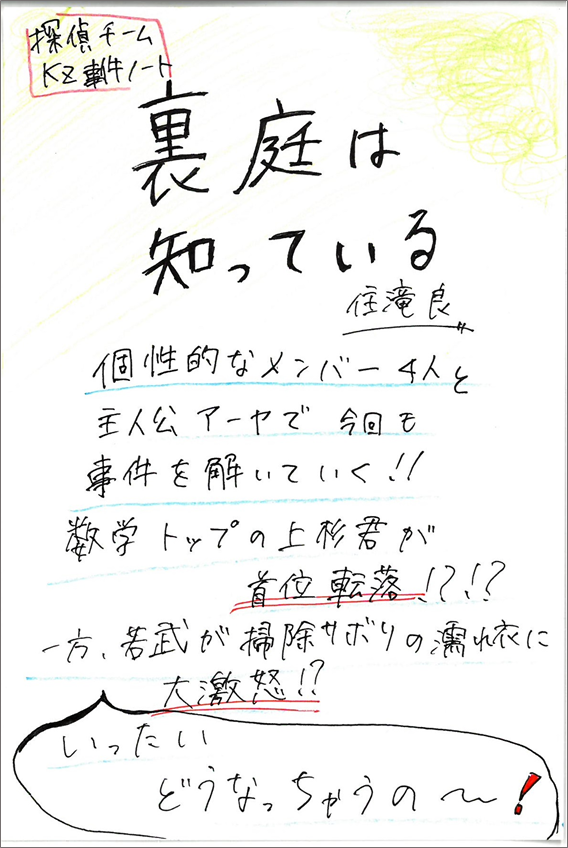 探偵チーム
KZ事件ノート
裏庭は
知っている
住滝良
個性的なメンバー4人と
主人公アーヤで今回も
事件を解いていく!!
数学トップの上杉君が
首位転落!?!?
一方、若武が掃除サボりの濡れ衣に
大激怒!?
いったい
どうなっちゃうの〜!